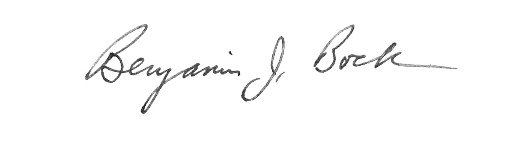 Benjamin J. Bock